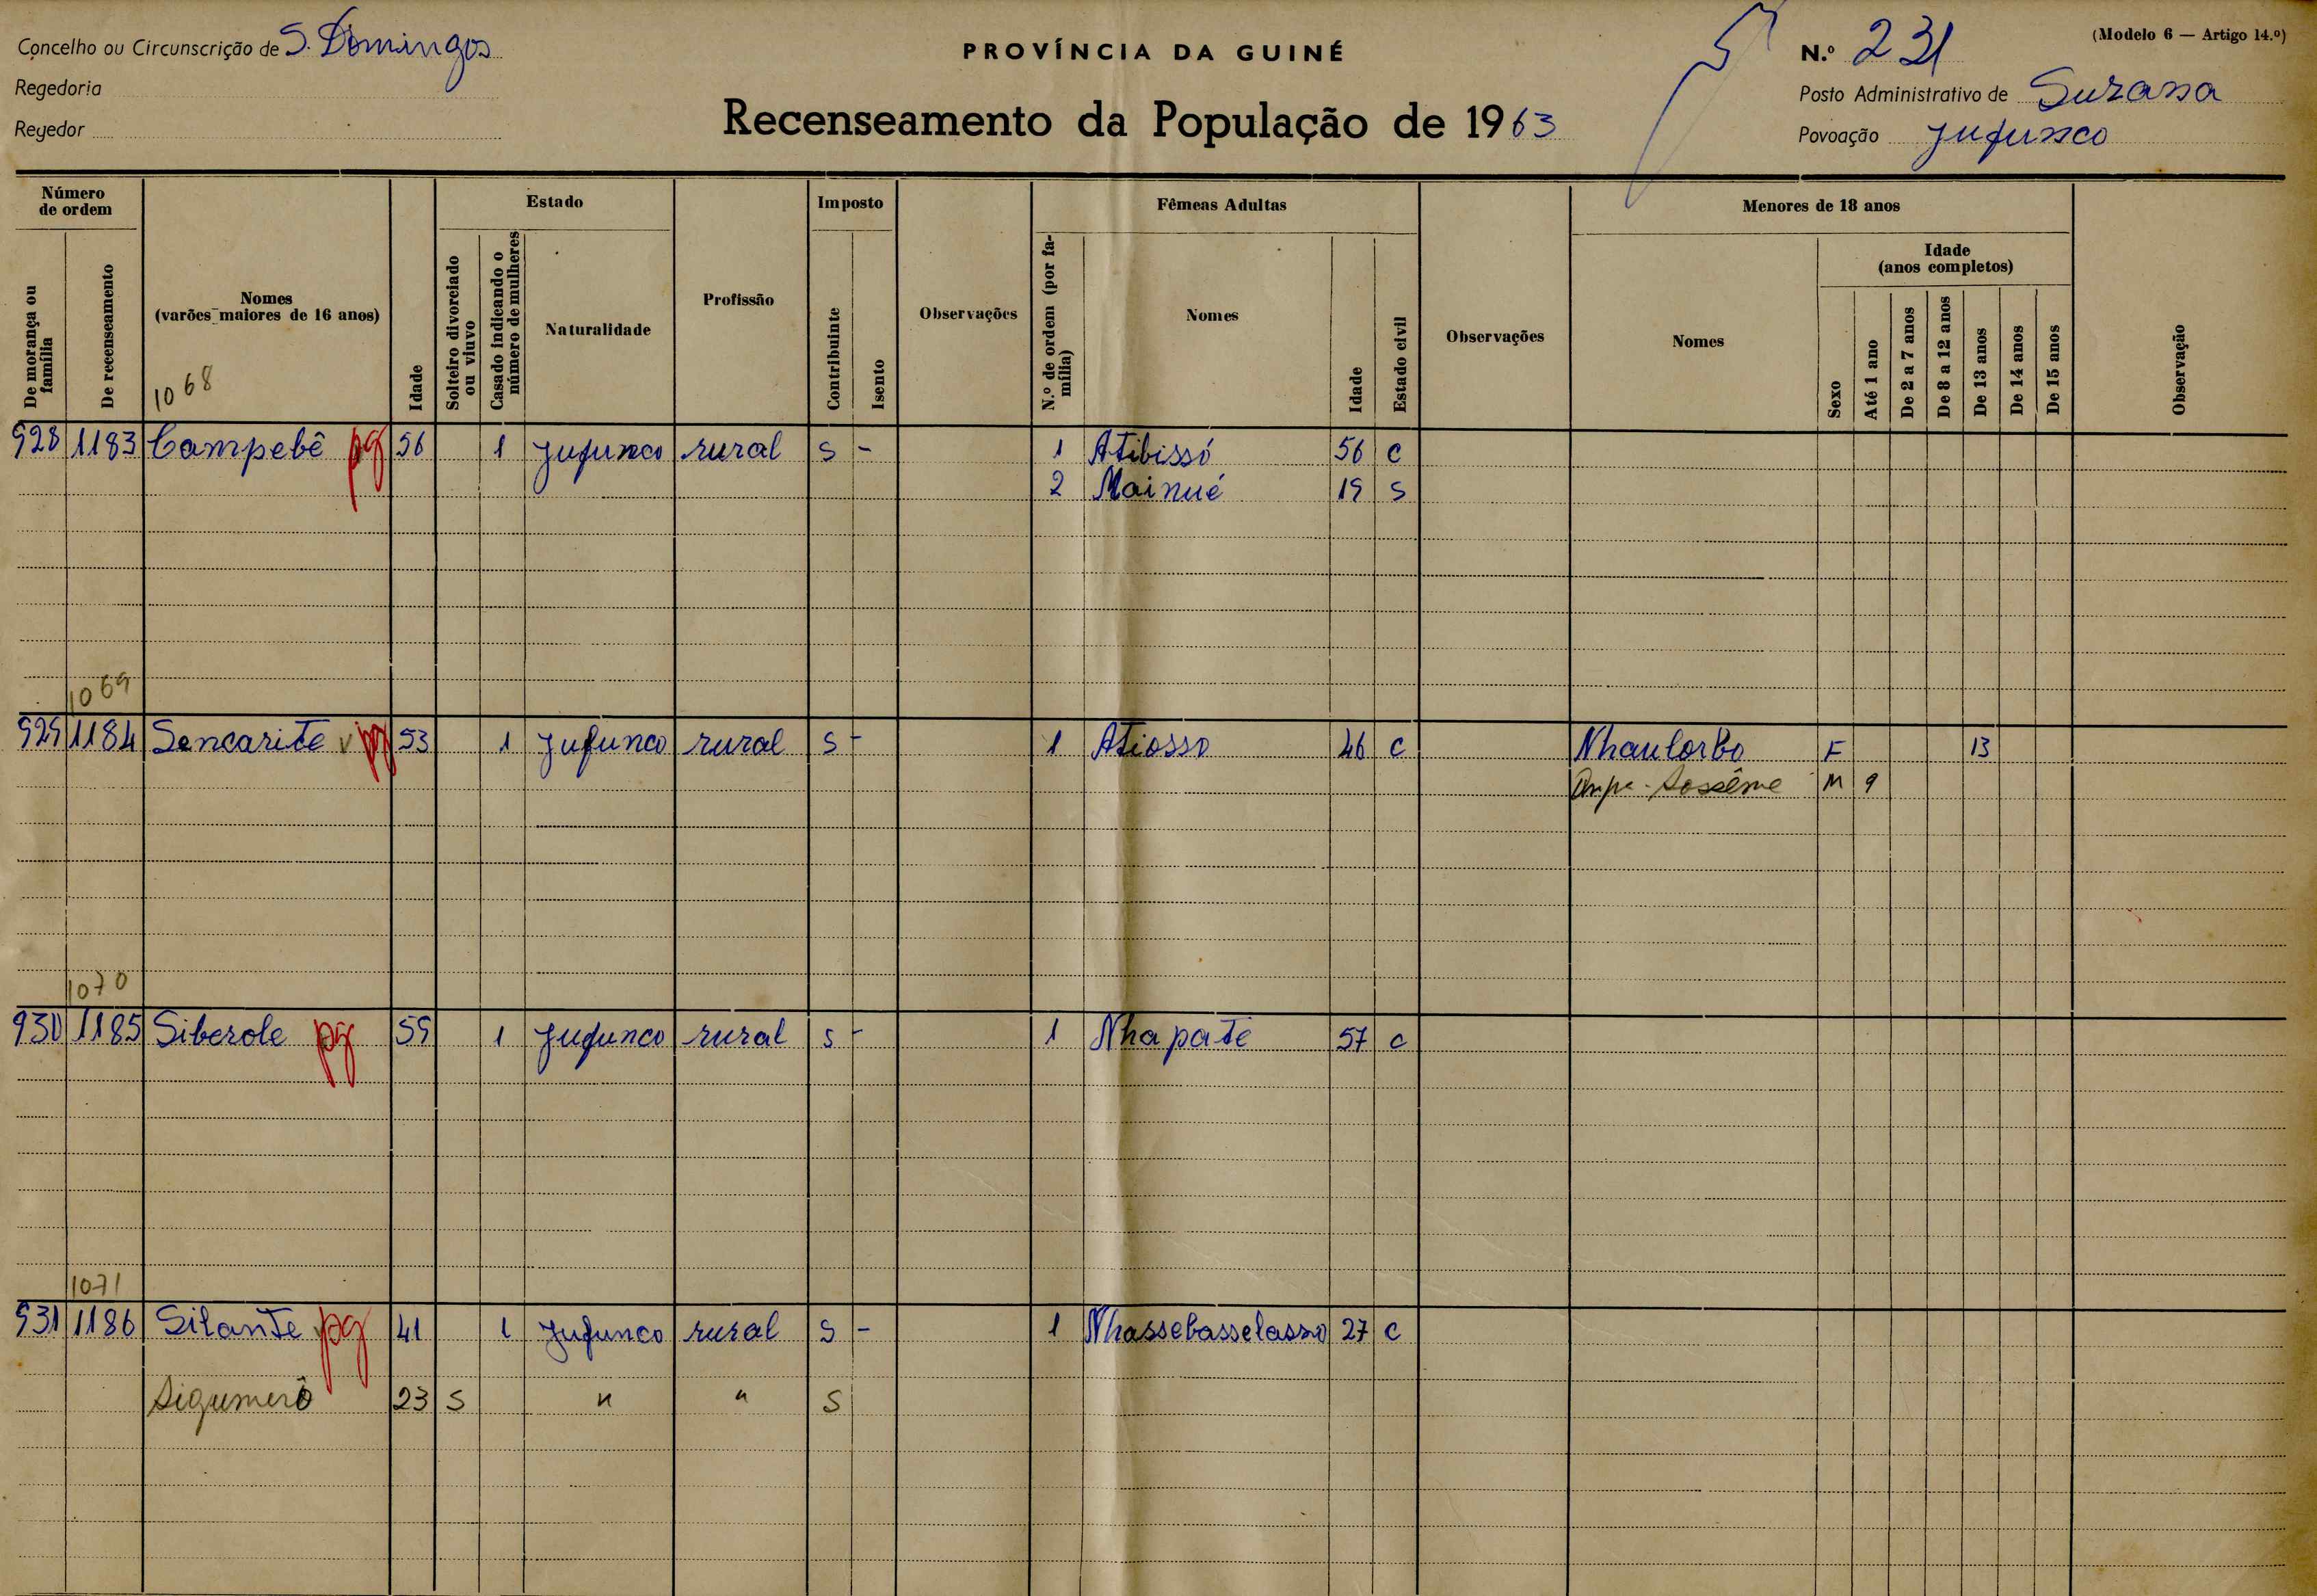 Concelho ou Circunscrição de S. Domingos
Regedoria
Regedor
PROVÍNCIA DA GUINÉ
Recenseamento da População de 1963
(Modelo 6 — Artigo 14.º)
N.º 231
Posto Administrativo de Suzana
Povoação Jufunco
Número de ordem
De morança ou família
De recenseamento
Nomes
(varões maiores de 16 anos)
Idade
Estado
Solteiro divorciado ou viuvo
Casado indicando o número de mulheres
Naturalidade
Profissão
Imposto
Contribuinte
Isento
Observações
Fêmeas Adultas
N.º de ordem (por família)
Nomes
Idade
Estado civil
Observações
Menores de 18 anos
Nomes
Sexo
Idade
(anos completos)
Até 1 ano
De 2 a 7 anos
De 8 a 12 anos
De 13 anos
De 14 anos
De 15 anos
Observação
1068
928 1183 Campebê pg 56 1 Jufunco rural S - 1 Atibissó 56 C
2 Mainué 19 S
1069
929 1184 Sencarite v pg 53 1 Jufunco rural S - 1 Atiosso 46 C Nhaulorbo F 13
Sossême M 9
1070
930 1185 Siberole pg 59 1 Jufunco rural S - 1 Nhapate 57 C
1071
931 1186 Silante pg 41 1 Jufunco rural S - 1 Nhassebasselasso 27 C
Sigumerô 23 S " " S